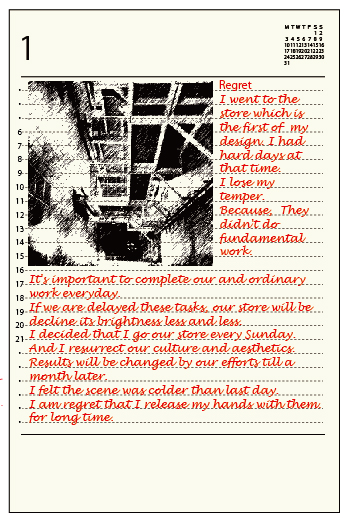 1
M T W T F S S
1 2
3 4 5 6 7 8 9
10 11 12 13 14 15 16
17 18 19 20 21 22 23
24 25 26 27 28 29 30
31
Regret
I went to the
store which is
the first of my
design. I had
hard days at
that time.
I lose my
temper.
Because, They
didn't do
fundamental
work.
6
7
8
9
10
11
12
13
14
15
16
17
18
19
20
21
It's important to complete our and ordinary
work everyday.
If we are delayed these tasks, our store will be
decline its brightness less and less.
I decided that I go our store every Sunday.
And I resurrect our culture and aesthetics.
Results will be changed by our efforts till a
month later.
I felt the scene was colder than last day.
I am regret that I release my hands with them,
for long time.